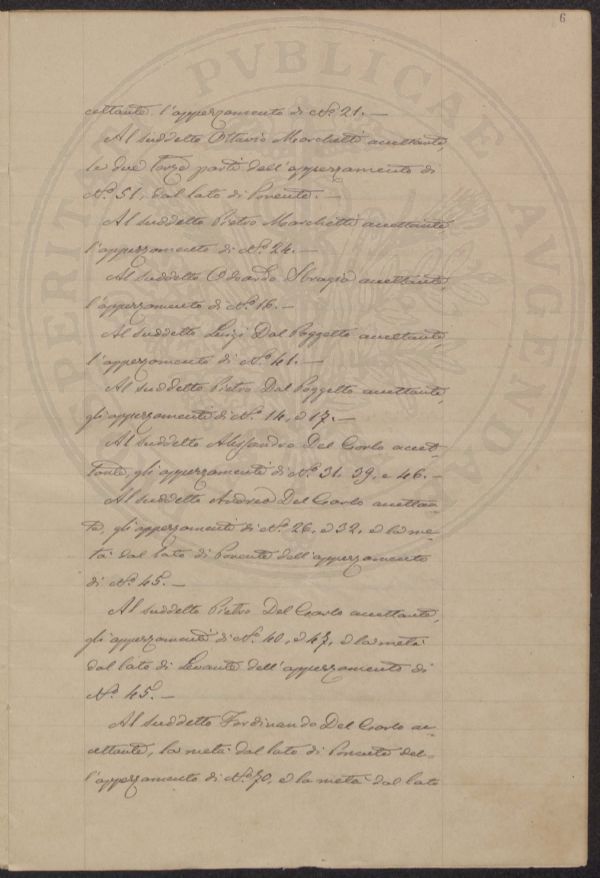 6
PVBLICAE
AVGENDAE
cettante l'appezzamento di N.° 21. —
Al suddetto Ottavio Marchetti accettante,
le due terze parti dell'appezzamento di
N.° 51, dal lato di Ponente. —
Al suddetto Pietro Marchetti accettante
l'appezzamento di N.° 24. —
Al suddetto Odoardo Sbragia accettante,
l'appezzamento di N.° 16. —
Al suddetto Luigi Dal Poggetto accettante,
l'appezzamento di N.° 41. —
Al suddetto Pietro Dal Poggetto accettante,
gli appezzamenti di N.° 14, e 17. —
Al suddetto Alessandro Del Carlo accet-
tante, gli appezzamenti di N.° 31. 39, e 46. —
Al suddetto Andrea Del Carlo accettan-
te, gli appezzamenti di N.° 26, e 32, e la me-
tà dal lato di Ponente dell'appezzamento
di N.° 45. —
Al suddetto Pietro Del Carlo accettante,
gli appezzamenti di N.° 40, e 47, e la metà
dal lato di Levante dell'appezzamento di
N.° 45. —
Al suddetto Ferdinando Del Carlo ac-
cettante, la metà dal lato di Ponente del-
l'appezzamento di N.° 70, e la metà dal lato